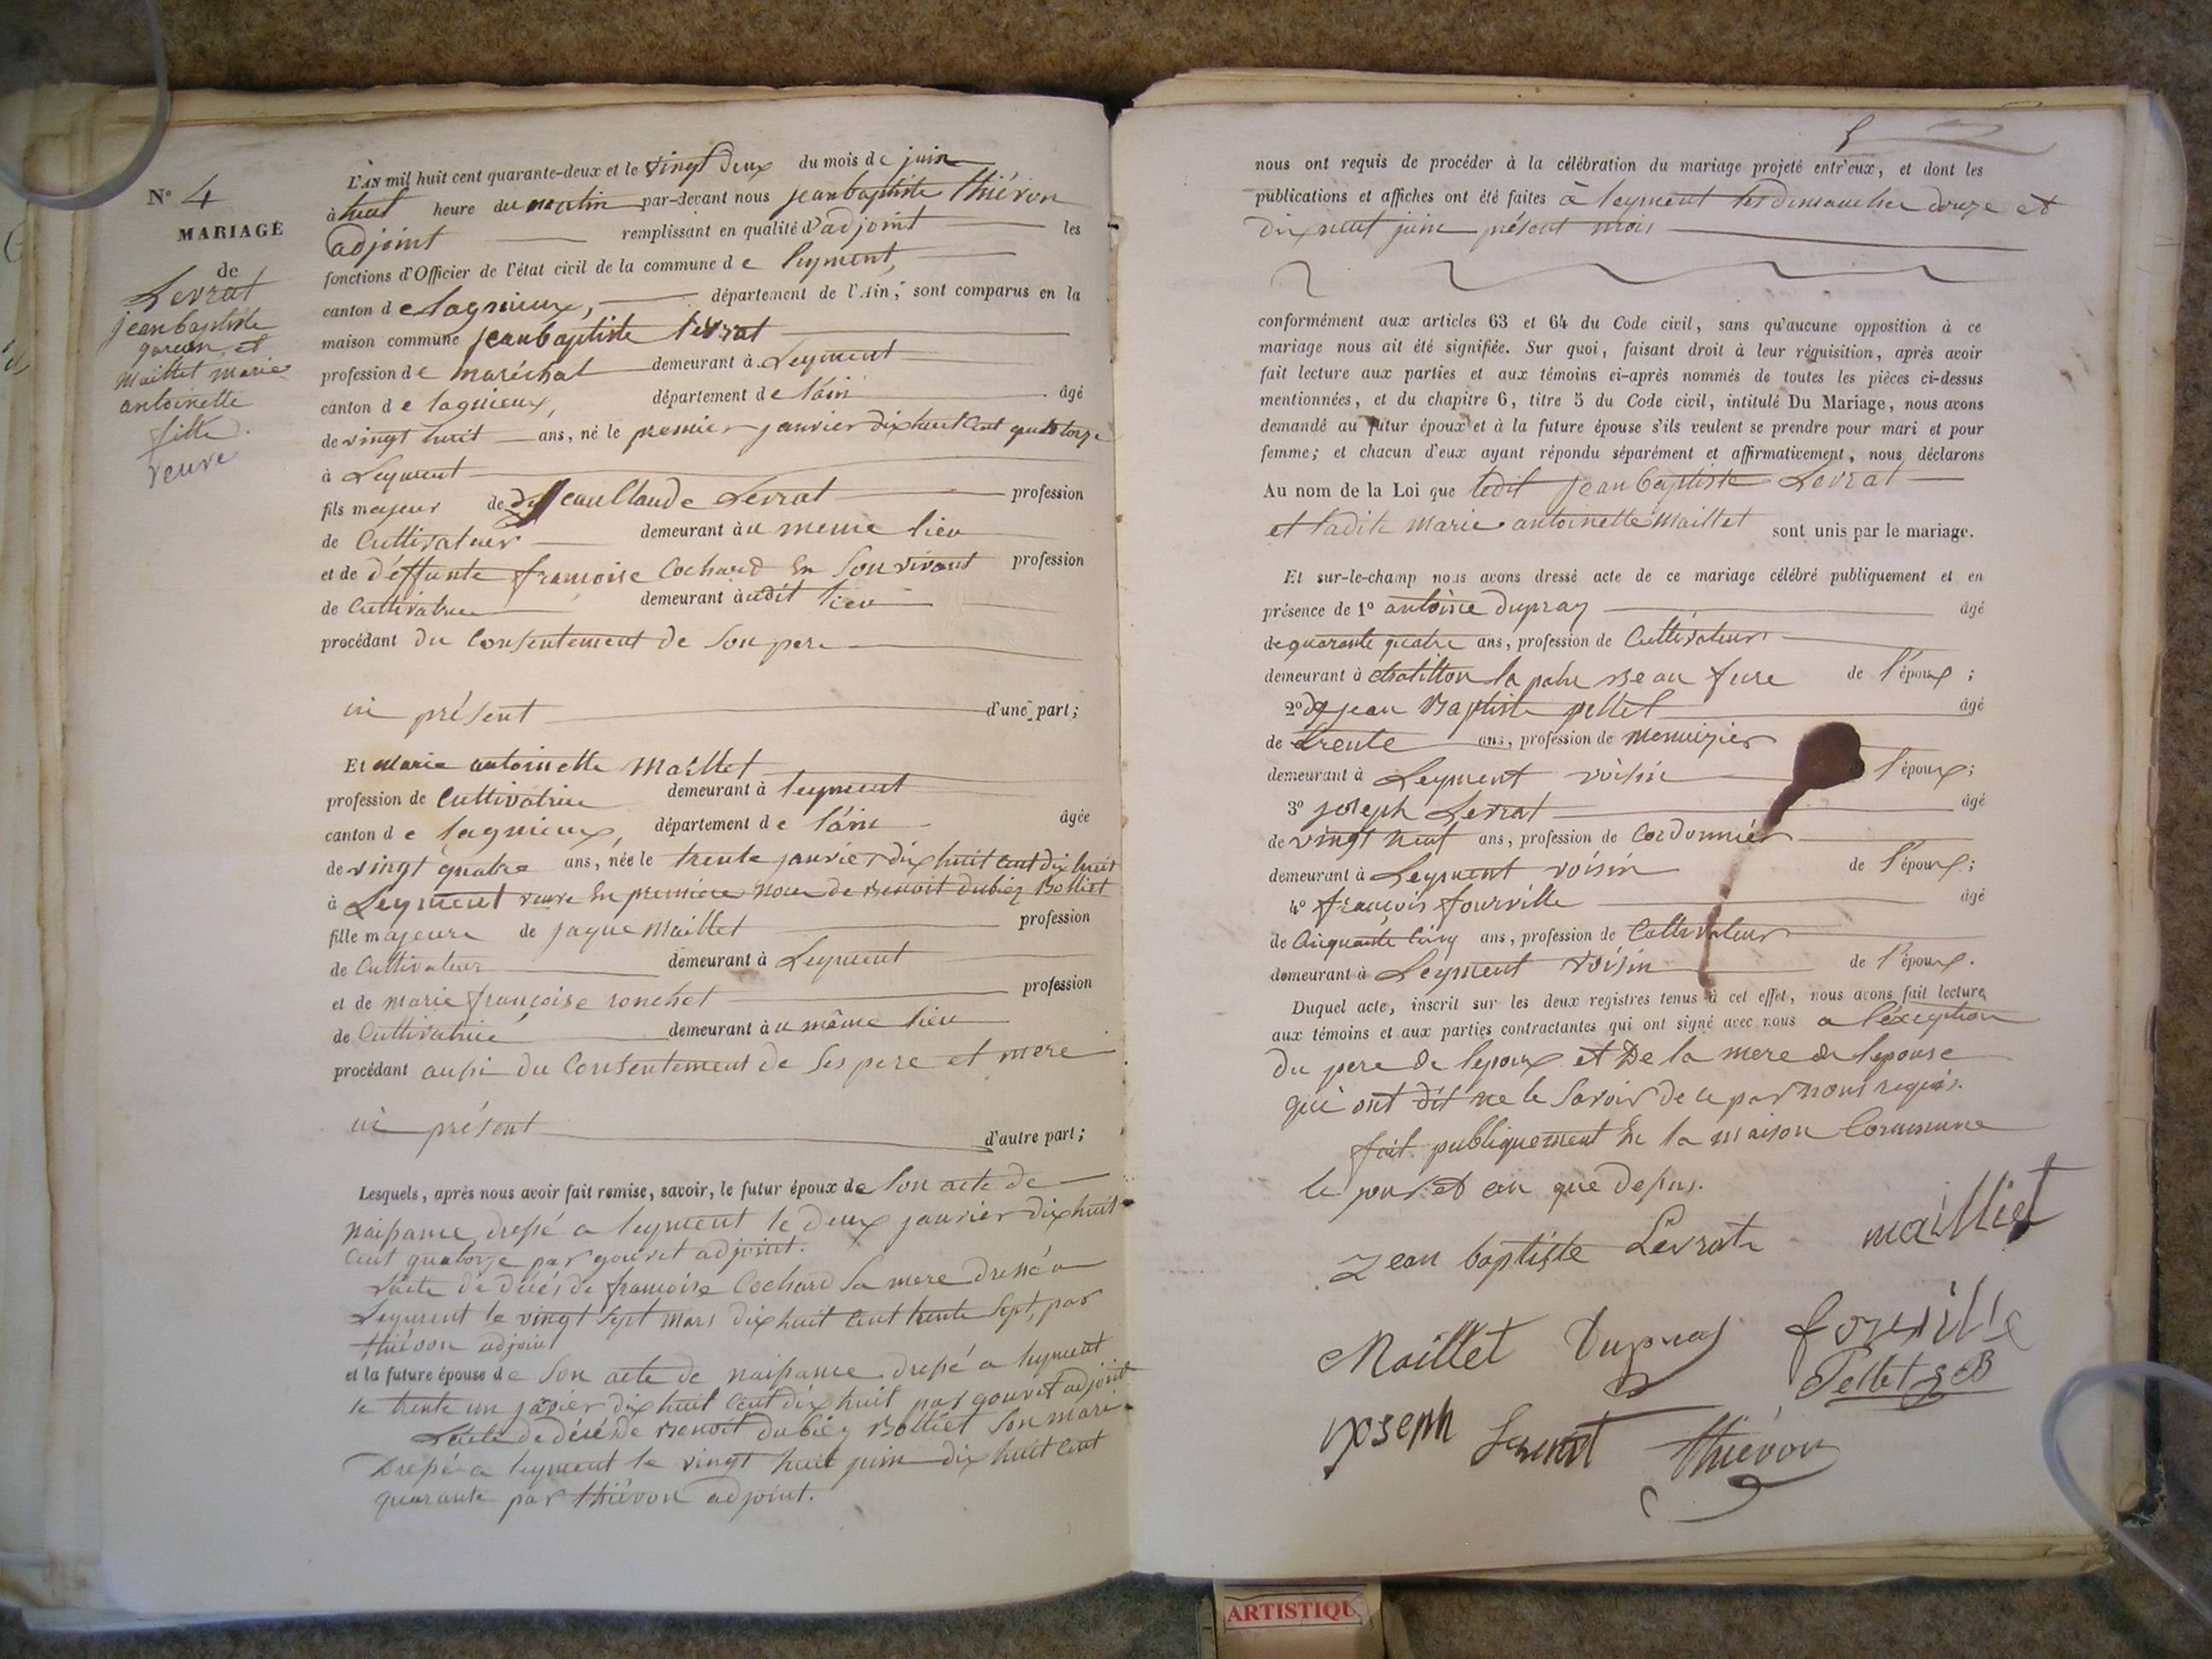 N° 4
MARIAGE
de
Levrat
jean baptiste
garcon et
Maillet marie
antoinette
fille
veuve
L'AN mil huit cent quarante-deux et le vingt deux du mois de juin
à huit heure du matin par-devant nous jean baptiste thiévon
adjoint remplissant en qualité d'adjoint les
fonctions d'Officier de l'état civil de la commune de leyment,
canton de lagnieux, département de l'Ain, sont comparus en la
maison commune jean baptiste levrat
profession de maréchal demeurant à Leyment
canton de lagnieux, département de l'ain âgé
de vingt huit ans, né le premier janvier dix huit cent quatorze
à Leyment
fils majeur de jean Claude Levrat profession
de Cultivateur demeurant au meme lieu
et de déffunte françoise Cochard En Son vivant profession
de Cultivatrice demeurant audit lieu
procédant du Consentement de Son pere
ici présent d'une part;
Et marie antoinette Maillet
profession de Cultivatrice demeurant à leyment
canton de lagnieux, département de l'ain âgée
de vingt quatre ans, née le trente janvier dix huit cent dix huit
à Leyment veuve En premiere noce de Benoit dubiez Bolliet
fille majeure de jaque Maillet profession
de Cultivateur demeurant à Leyment
et de marie françoise ronchet profession
de Cultivatrice demeurant au même lieu
procédant aussi du Consentement de Ses pere et mere
ici présent d'autre part;
Lesquels, après nous avoir fait remise, savoir, le futur époux de Son acte de
naissance dressé a leyment le deux janvier dix huit
Cent quatorze par gouvet adjoint.
L'acte de décés de françoise Cochard Sa mere dressé a
Leyment le vingt Sept mars dix huit Cent trente Sept, par
thiévon adjoint
et la future épouse de Son acte de naissance dressé a leyment
le trente un javier dix huit Cent dix huit par gouvet adjoint
L'acte de décés de Benoit dubiez Bolliet Son mari
Dressé a leyment le vingt huit juin dix huit Cent
quarante par thiévon adjoint.
5
nous ont requis de procéder à la célébration du mariage projeté entr'eux, et dont les
publications et affiches ont été faites à leyment les dimanches douze et
dix neuf juin présent mois
conformément aux articles 63 et 64 du Code civil, sans qu'aucune opposition à ce
mariage nous ait été signifiée. Sur quoi, faisant droit à leur réquisition, après avoir
fait lecture aux parties et aux témoins ci-après nommés de toutes les pièces ci-dessus
mentionnées, et du chapitre 6, titre 5 du Code civil, intitulé Du Mariage, nous avons
demandé au futur époux et à la future épouse s'ils veulent se prendre pour mari et pour
femme; et chacun d'eux ayant répondu séparément et affirmativement, nous déclarons
Au nom de la Loi que ledit jean baptiste Levrat
et ladite Marie antoinette Maillet sont unis par le mariage.
Et sur-le-champ nous avons dressé acte de ce mariage célébré publiquement et en
présence de 1° antoine dupray âgé
de quarante quatre ans, profession de Cultivateur
demeurant à chatillon la palu de l'époux;
2° jean Baptiste pellet âgé
de trente ans, profession de Menuizier
demeurant à Leyment voisin l'époux;
3° joseph Levrat âgé
de vingt neuf ans, profession de Cordonnier
demeurant à Leyment voisin de l'époux;
4° françois fourville âgé
de Cinquante Cinq ans, profession de Cultivateur
demeurant à Leyment voisin de l'époux.
Duquel acte, inscrit sur les deux registres tenus à cet effet, nous avons fait lecture
aux témoins et aux parties contractantes qui ont signé avec nous a l'éxception
du pere de lepoux et De la mere de lepouse
qui ont dit ne le Savoir de ce par nous requis.
fait publiquement En la maison Commune
le jour et an que dessus.
Jean baptiste Levrat mailliet
Maillet Dupras fourville
Pellet J B
joseph Levrat thiévon
ARTISTIQU